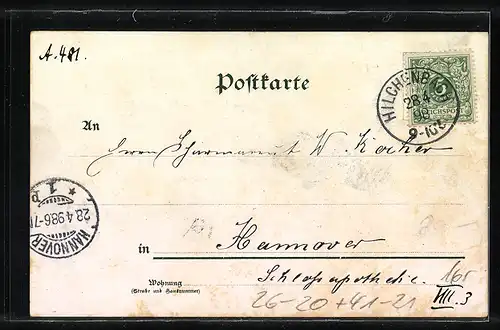 A. 481.
Postkarte
HILCHENBACH
28 4
98
9-10V
REICHSPOST
5
An
Herrn Pharmaceut W. Kocher
HANNOVER
28.4.98.6-7N
* 1 p
in Hannover
Wohnung
(Straße und Hausnummer)
Schlossapotheke.
16r
VIII.3
26-20+41-21